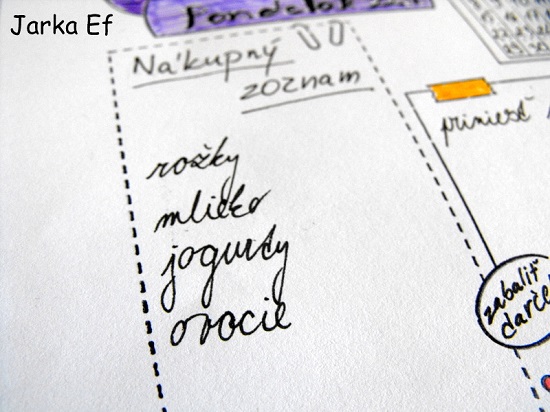 Jarka Ef
Pondelok
Nákupný
zoznam
rožky
mlieko
jogurty
ovocie
priniesť
zabaliť